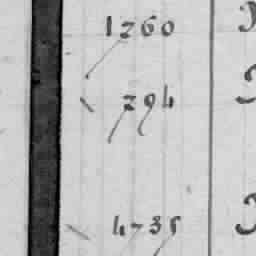 1260
294
4735